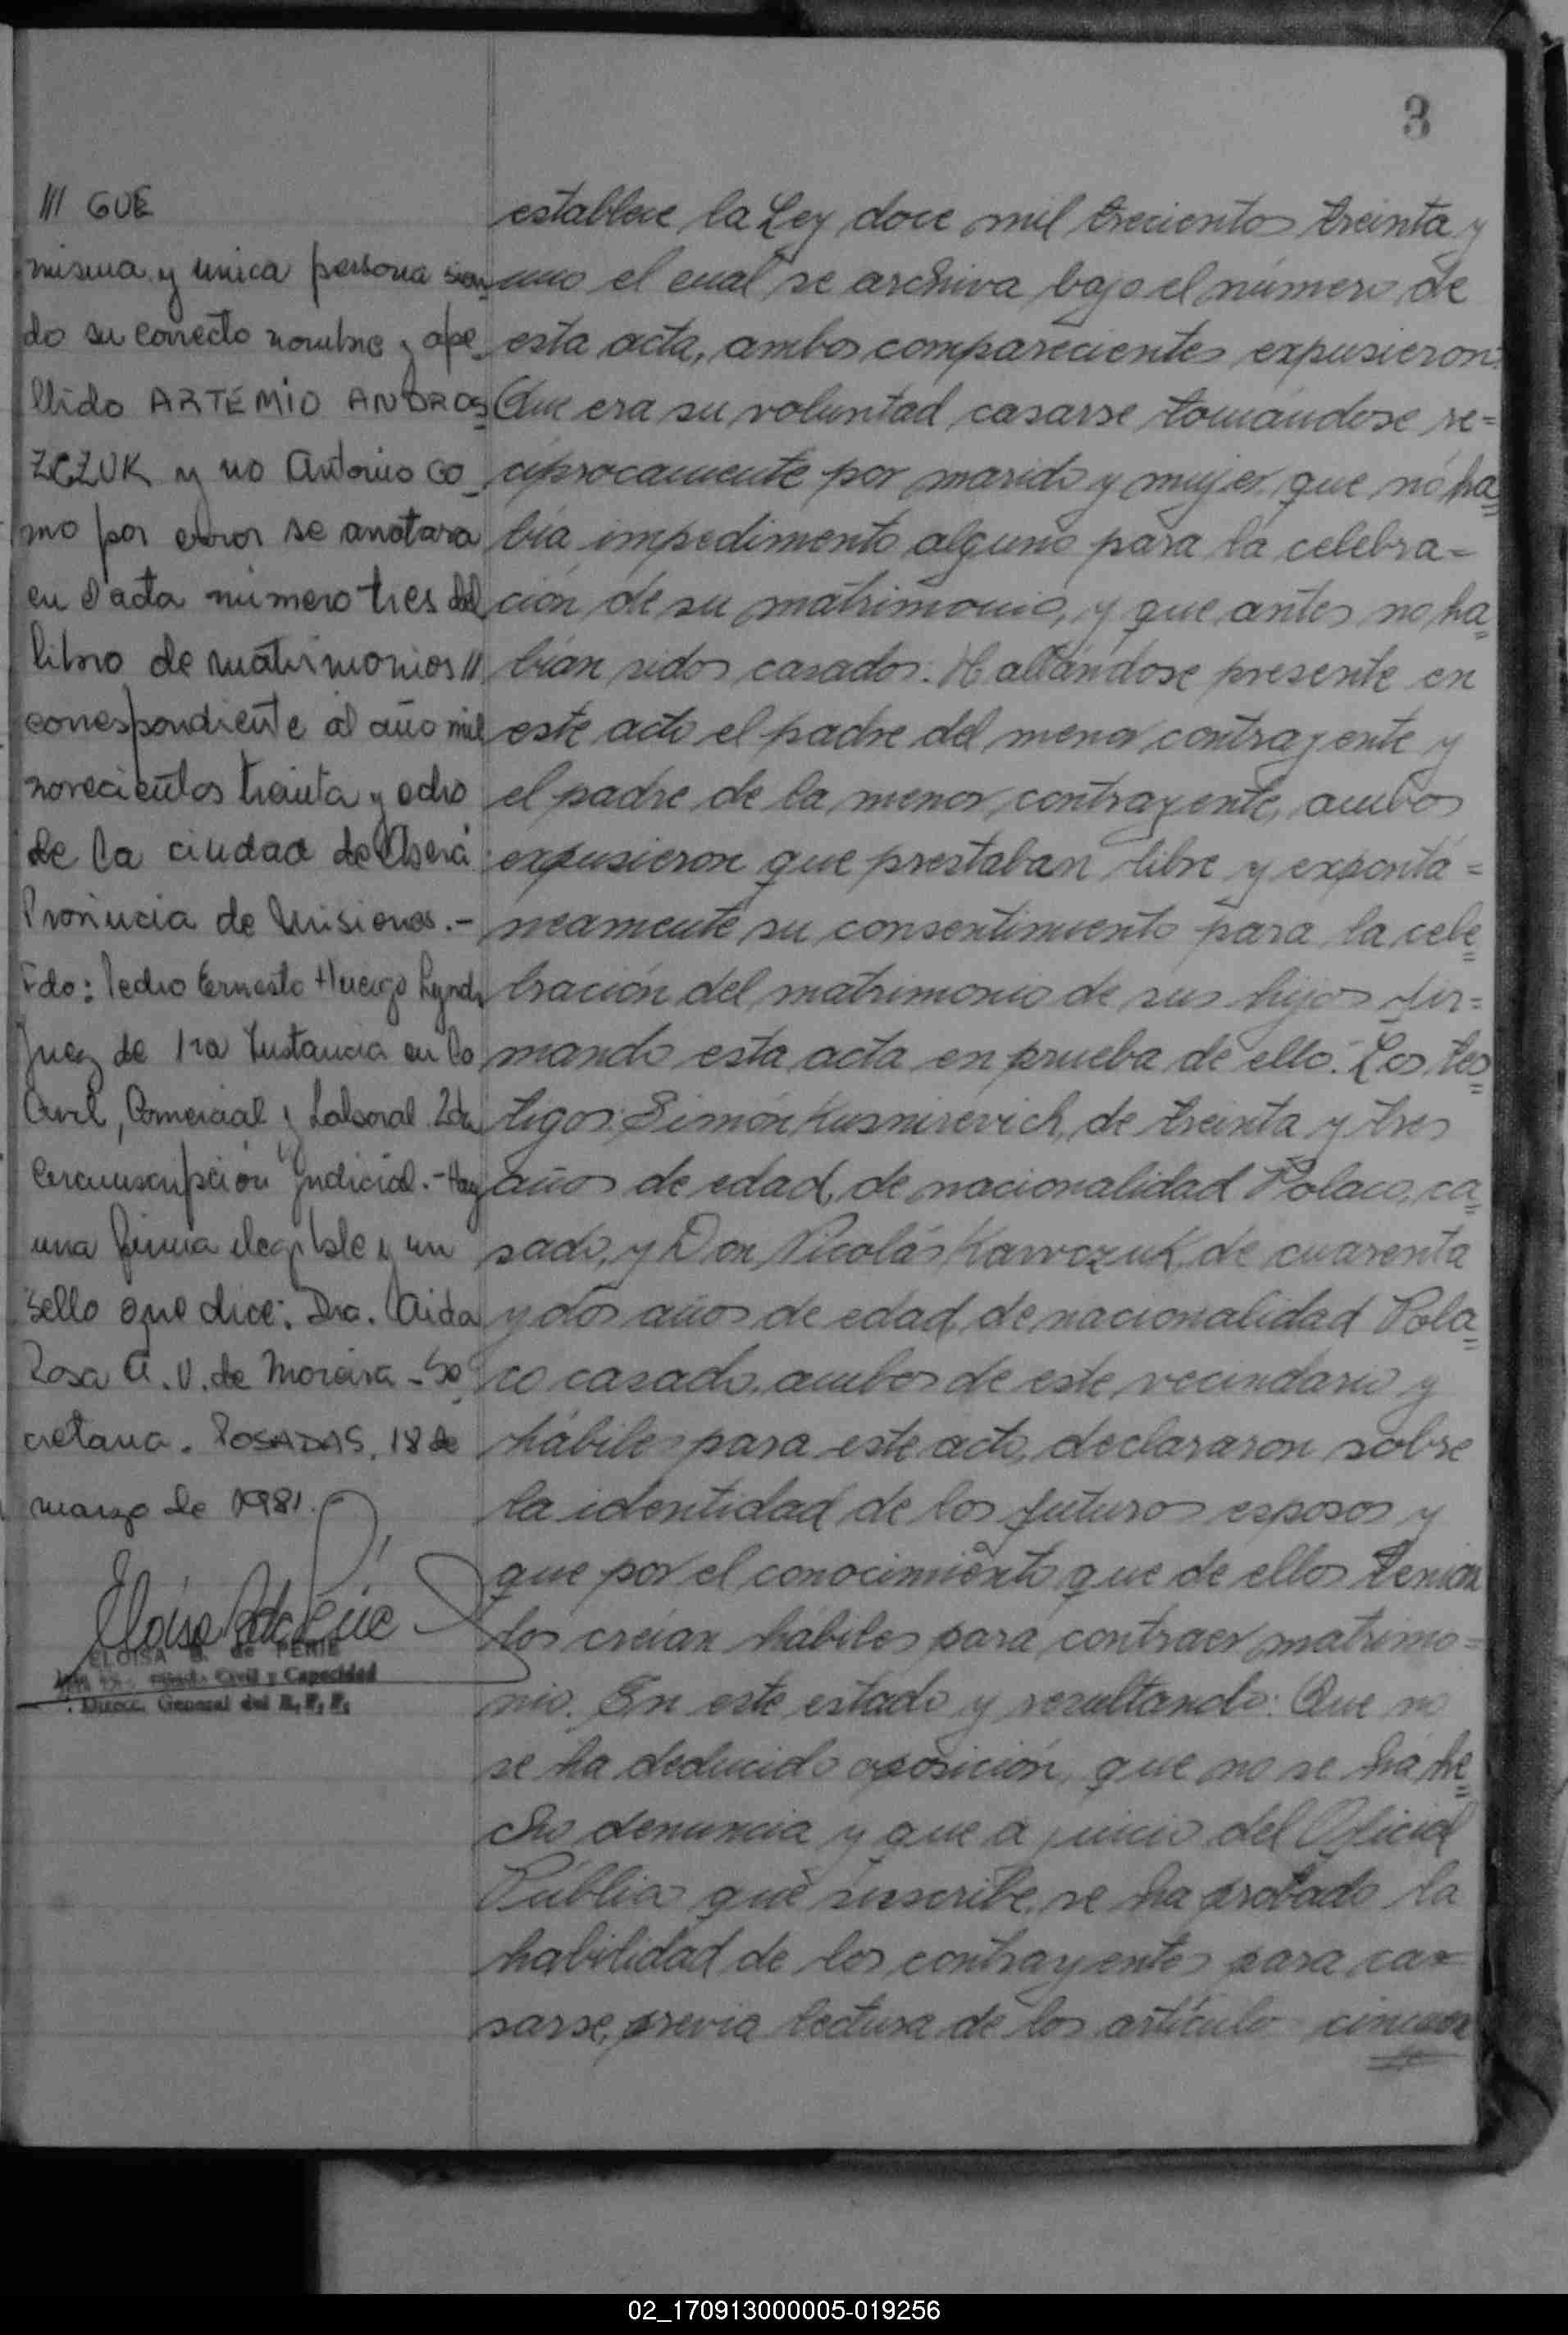 3
III GUE
misma y unica persona sien
do su correcto nombre y ape
llido ARTEMIO ANDROS
ZCZUK y no Antonio co
mo por error se anotara
en el acta número tres del
libro de matrimonios //
correspondiente al año mil
novecientos treinta y ocho
de la ciudad de Oberá
Provincia de Misiones.-
Fdo: Pedro Ernesto Huergo
Juez de 1ra Instancia en lo
Civil, Comercial y Laboral 2da
Circunscripción Judicial.- Hay
una firma ilegible y un
sello que dice: Dra. Aida
Rosa A. V. de Moreira - Se
cretaria. POSADAS, 18 de
marzo de 1981.
ELOISA B. de PERIE
Civil y Capacidad
Direcc. General del R. P. P.
establece la Ley doce mil treciento treinta y
uno el cual se archiva bajo el número de
esta acta, ambos comparecientes expusieron:
Que era su voluntad casarse tomándose re=
ciprocamente por marido y mujer que no ha=
bía impedimento alguno para la celebra=
ción de su matrimonio, y que antes no ha=
bían sidos casados. Hallándose presente en
este acto el padre del menor contrayente y
el padre de la menor contrayente, ambos
expusieron que prestaban libre y expontá=
neamente su consentimiento para la cele=
bración del matrimonio de sus hijos fir=
mando esta acta en prueba de ello. Los tes=
tigos: Simón Kusnirevich, de treinta y tres
años de edad, de nacionalidad Polaco, ca=
sado, y Don Nicolás Kawczuk, de cuarenta
y dos años de edad, de nacionalidad Pola=
co casado, ambos de este vecindario y
hábiles para este acto, declararon sobre
la identidad de los futuros esposos y
que por el conocimiento que de ellos tenían
los creían hábiles para contraer matrimo=
nio. En este estado y resultando: Que no
se ha deducido oposición, que no se há he=
cho denuncia y que a juicio del Oficial
Público que suscribe, se ha probado la
habilidad de los contrayentes para ca=
sarse, previa lectura de los artículo cincuen
02_170913000005-019256